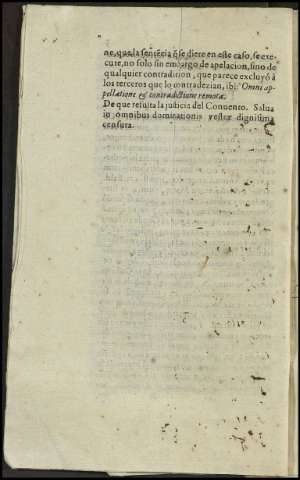 ne, que la sentẽcia q̃ se diere en este caso, se exe-
cute, no solo sin embargo de apelacion, sino de
qualquier contradition, que parece excluyò à
los terceros que lo contradezian, ibi: Omni ap-
pellatione & contradictione remota.
De que resulta la justicia del Conuento. Salua
in omnibus dominationis vestræ dignissima
censura.